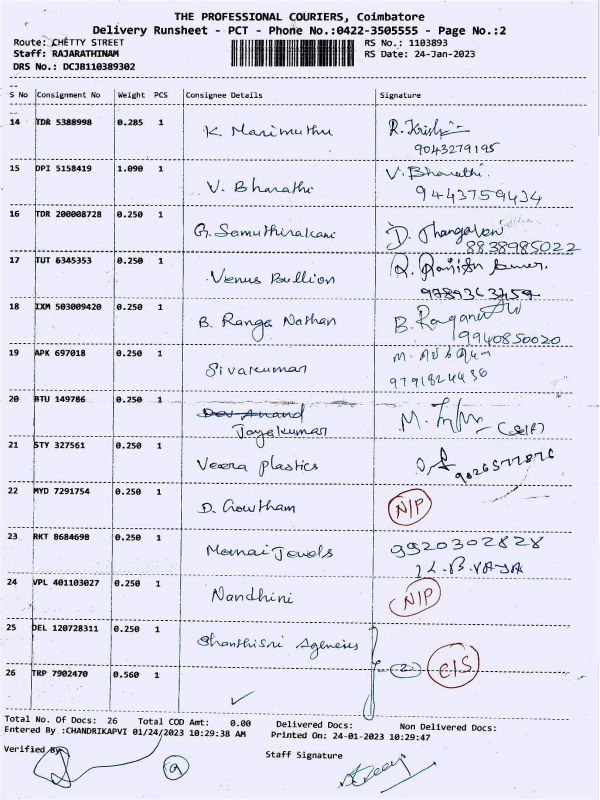 THE PROFESSIONAL COURIERS, Coimbatore
Delivery Runsheet - PCT - Phone No.:0422-3505555 - Page No.:2
Route: CHETTY STREET RS No.: 1103893
Staff: RAJARATHINAM RS Date: 24-Jan-2023
DRS No.: DCJB110389302
S No Consignment No Weight PCS Consignee Details Signature
14 TDR 5388998 0.285 1 K. Marimuthu R. Krish
9043279195
15 DPI 5158419 1.090 1 V. Bharathi V. Bharathi.
9443759434
16 TDR 200008728 0.250 1 G. Samuthirakani D. Thangavel
8838985022
17 TUT 6345353 0.250 1 Venus Bullion
9789363459
18 IXM 503009420 0.250 1 B. Ranga Nathan B. Raganath
9940850020
19 APK 697018 0.250 1 Sivakumar
9791824430
20 BTU 149786 0.250 1 Dev Anand
Jayakumar (Self)
21 STY 327561 0.250 1 Veera Plastics
9026577876
22 MYD 7291754 0.250 1 D. Gowtham N/P
23 RKT 8684698 0.250 1 Memai Jewels 9920302828
24 VPL 401103027 0.250 1 Nandhini N/P
25 DEL 120728311 0.250 1 Shanthisri Agencies
(2) C/S
26 TRP 7902470 0.560 1 ✓
Total No. Of Docs: 26 Total COD Amt: 0.00 Delivered Docs: Non Delivered Docs:
Entered By :CHANDRIKAPVI 01/24/2023 10:29:38 AM Printed On: 24-01-2023 10:29:47
Verified By
Staff Signature